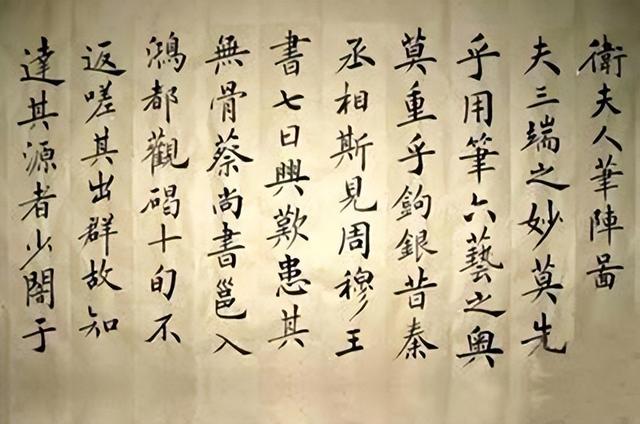 衛夫人筆陣啚
夫三端之妙莫先
乎用筆六藝之奥
莫重乎鉤銀昔秦
丞相斯見周穆王
書七日興歎患其
無骨蔡尚書邕入
鴻都觀碣十旬不
返嗟其出群故知
達其源者少闇于